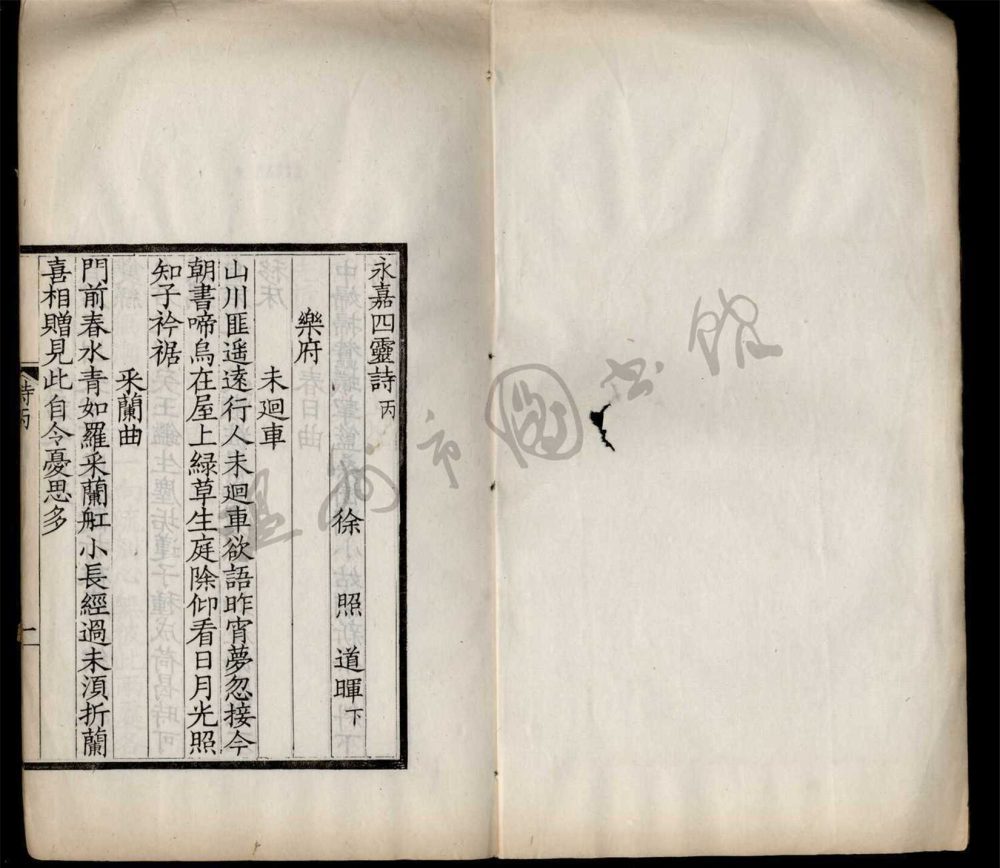 永嘉四靈詩丙
徐照道暉下
樂府
未迴車
山川匪遥遠行人未迴車欲語昨宵夢忽接今
朝書啼烏在屋上綠草生庭除仰看日月光照
知子衿裾
采蘭曲
門前春水青如羅采蘭舡小長經過未湏折蘭
喜相贈見此自令憂思多
詩丙
一
溫州市圖书館